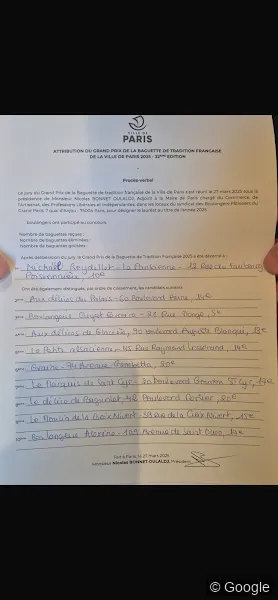 VILLE DE
PARIS
ATTRIBUTION DU GRAND PRIX DE LA BAGUETTE DE TRADITION FRANÇAISE
DE LA VILLE DE PARIS 2025 - 32ÈME EDITION
Procès-verbal
Le jury du Grand Prix de la Baguette de tradition française de la Ville de Paris s'est réuni le 27 mars 2025 sous la
présidence de Monsieur Nicolas BONNET OULALDJ, Adjoint à la Maire de Paris chargé du Commerce, de
l'Artisanat, des Professions Libérales et indépendantes, dans les locaux du syndicat des Boulangers Pâtissiers du
Grand Paris, 7 quai d'Anjou - 75004 Paris, pour désigner le lauréat au titre de l'année 2025.
Boulangers ont participé au concours.
Nombre de baguettes reçues :
Nombre de baguettes éliminées :
Nombre de baguettes goûtées :
Après délibération du jury, le Grand Prix de la Baguette de Tradition Française 2025 a été décerné à :
- La Parisienne - 12 Rue du Faubourg
Poissonnière, 10e
Ont été également distingués, par ordre de classement, les candidats suivants :
Aux délices du Palais - 60 Boulevard Brune, 14e
Boulangerie - 28 Rue Monge, 5e
Aux délices de Glacière, 90 boulevard Auguste Blanqui, 13e
La Petite Alsacienne - Rue Raymond Losserand, 14e
Graine - Avenue Gambetta, 20e
Le Marquis de Saint Cyr - Boulevard Gouvion St Cyr, 17e
Le délice de Boulevard Mortier, 20e
Le Moulin de la Croix Nivert - 39 Rue de la Croix Nivert, 15e
Boulangerie - Avenue de Saint Ouen, 17e
Fait à Paris, le 27 mars 2025
Monsieur Nicolas BONNET OULALDJ, Président
© Google